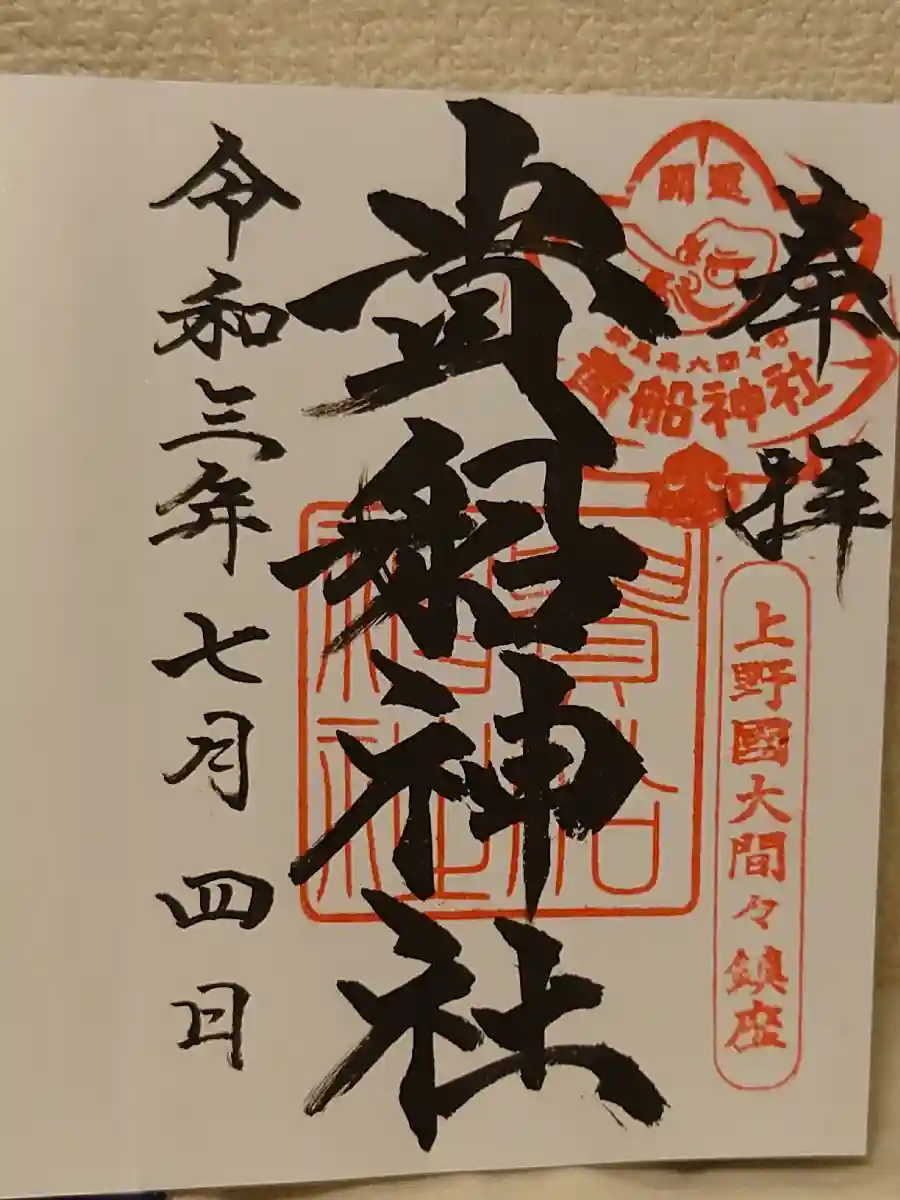 奉拝
開運
大間々町
貴船神社
上野國大間々鎮座
貴船神社
貴船神社
令和三年七月四日